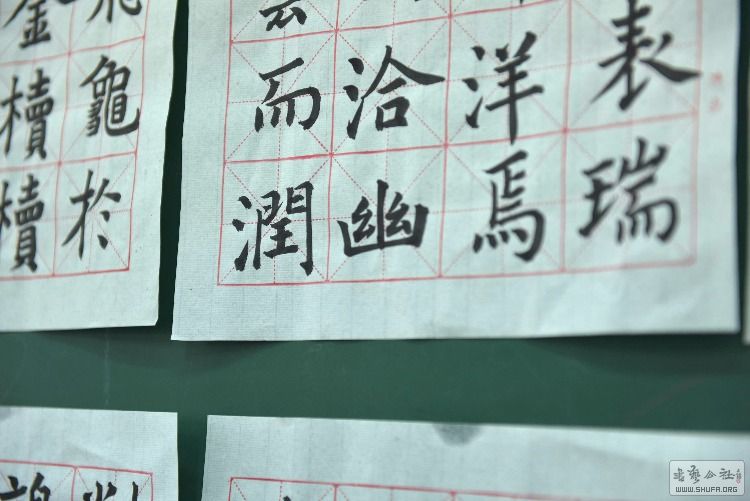 表瑞
洋焉
洽幽
而潤
龜於
櫝櫝
书艺公社
WWW.SHUFA.ORG